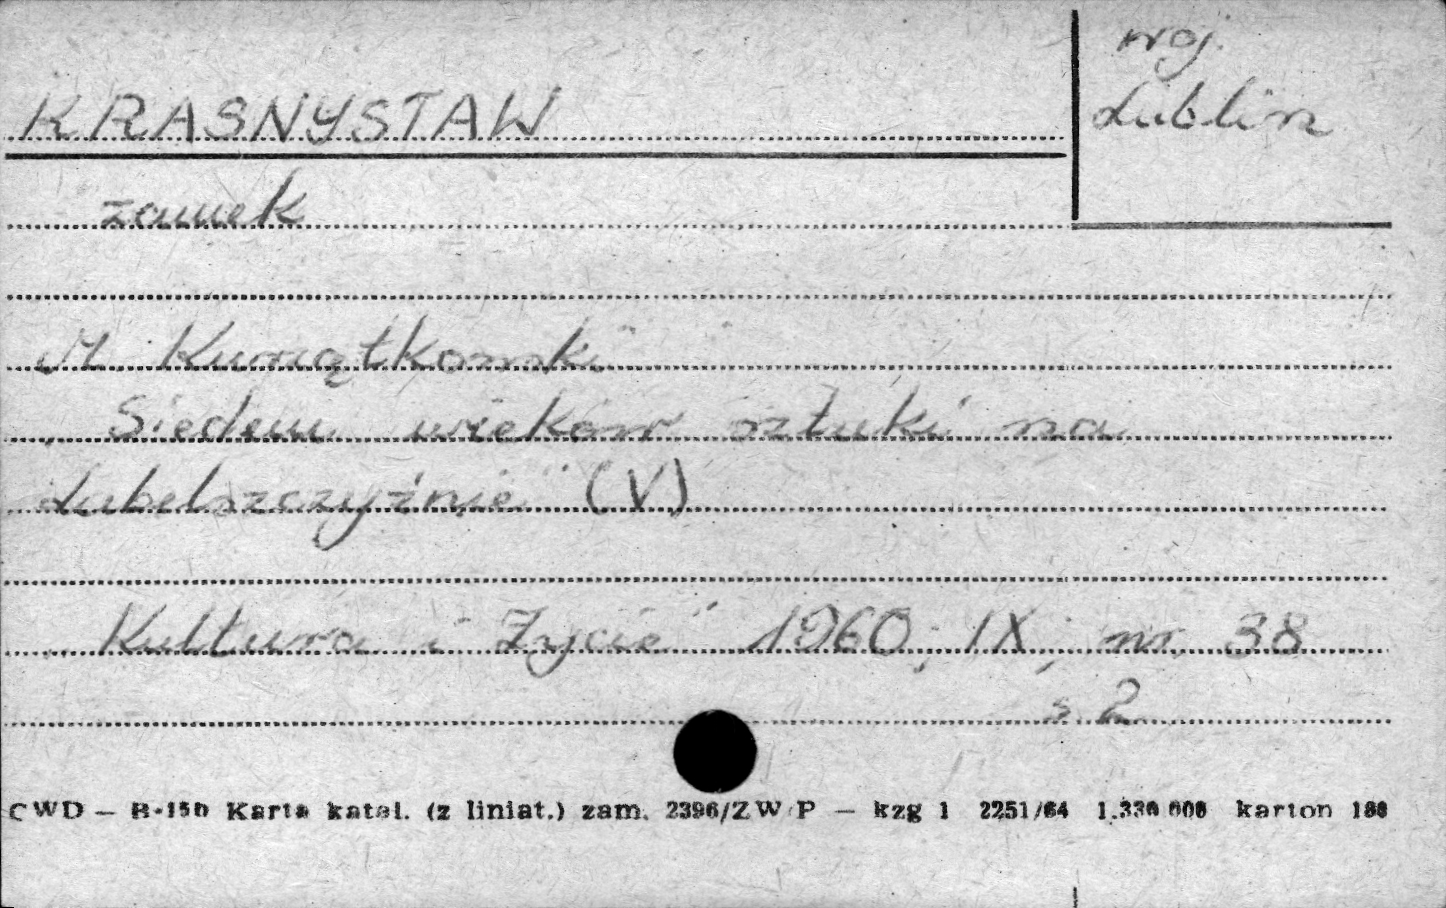 woj.
Lublin
KRASNYSTAW
zamek
M. Kurzątkowski
"Siedem wieków sztuki na
Lubelszczyźnie" (V)
"Kultura i Życie" 1960, IX, nr. 38
s. 2
CWD — B-15b Karta katal. (z liniat.) zam. 2396/ZW/P — kzg 1 2251/64 1.330.000 karton 180